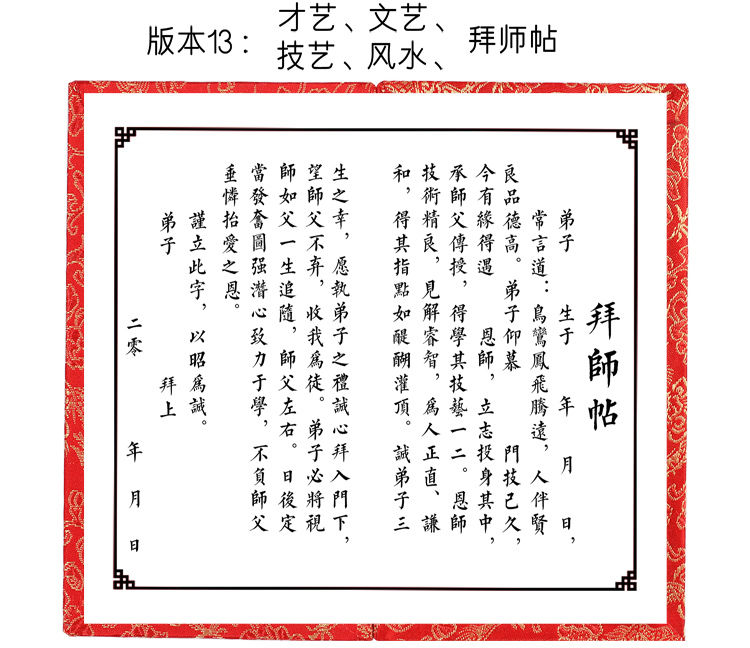 版本13：
才艺、文艺、
技艺、风水、
拜师帖
拜師帖
弟子 生于 年 月 日，
常言道：鳥鸞鳳飛騰遠，人伴賢
良品德高。弟子仰慕 門技已久，
今有緣得遇 恩師，立志投身其中，
承師父傳授，得學其技藝一二。恩師
技術精良，見解睿智，爲人正直、謙
和，得其指點如醍醐灌頂。誠弟子三
生之幸，愿執弟子之禮誠心拜入門下，
望師父不弃，收我爲徒。弟子必將視
師如父一生追隨，師父左右。日後定
當發奮圖强潛心致力于學，不負師父
垂憐抬愛之恩。
謹立此字，以昭爲誠。
弟子 拜上
二零 年 月 日